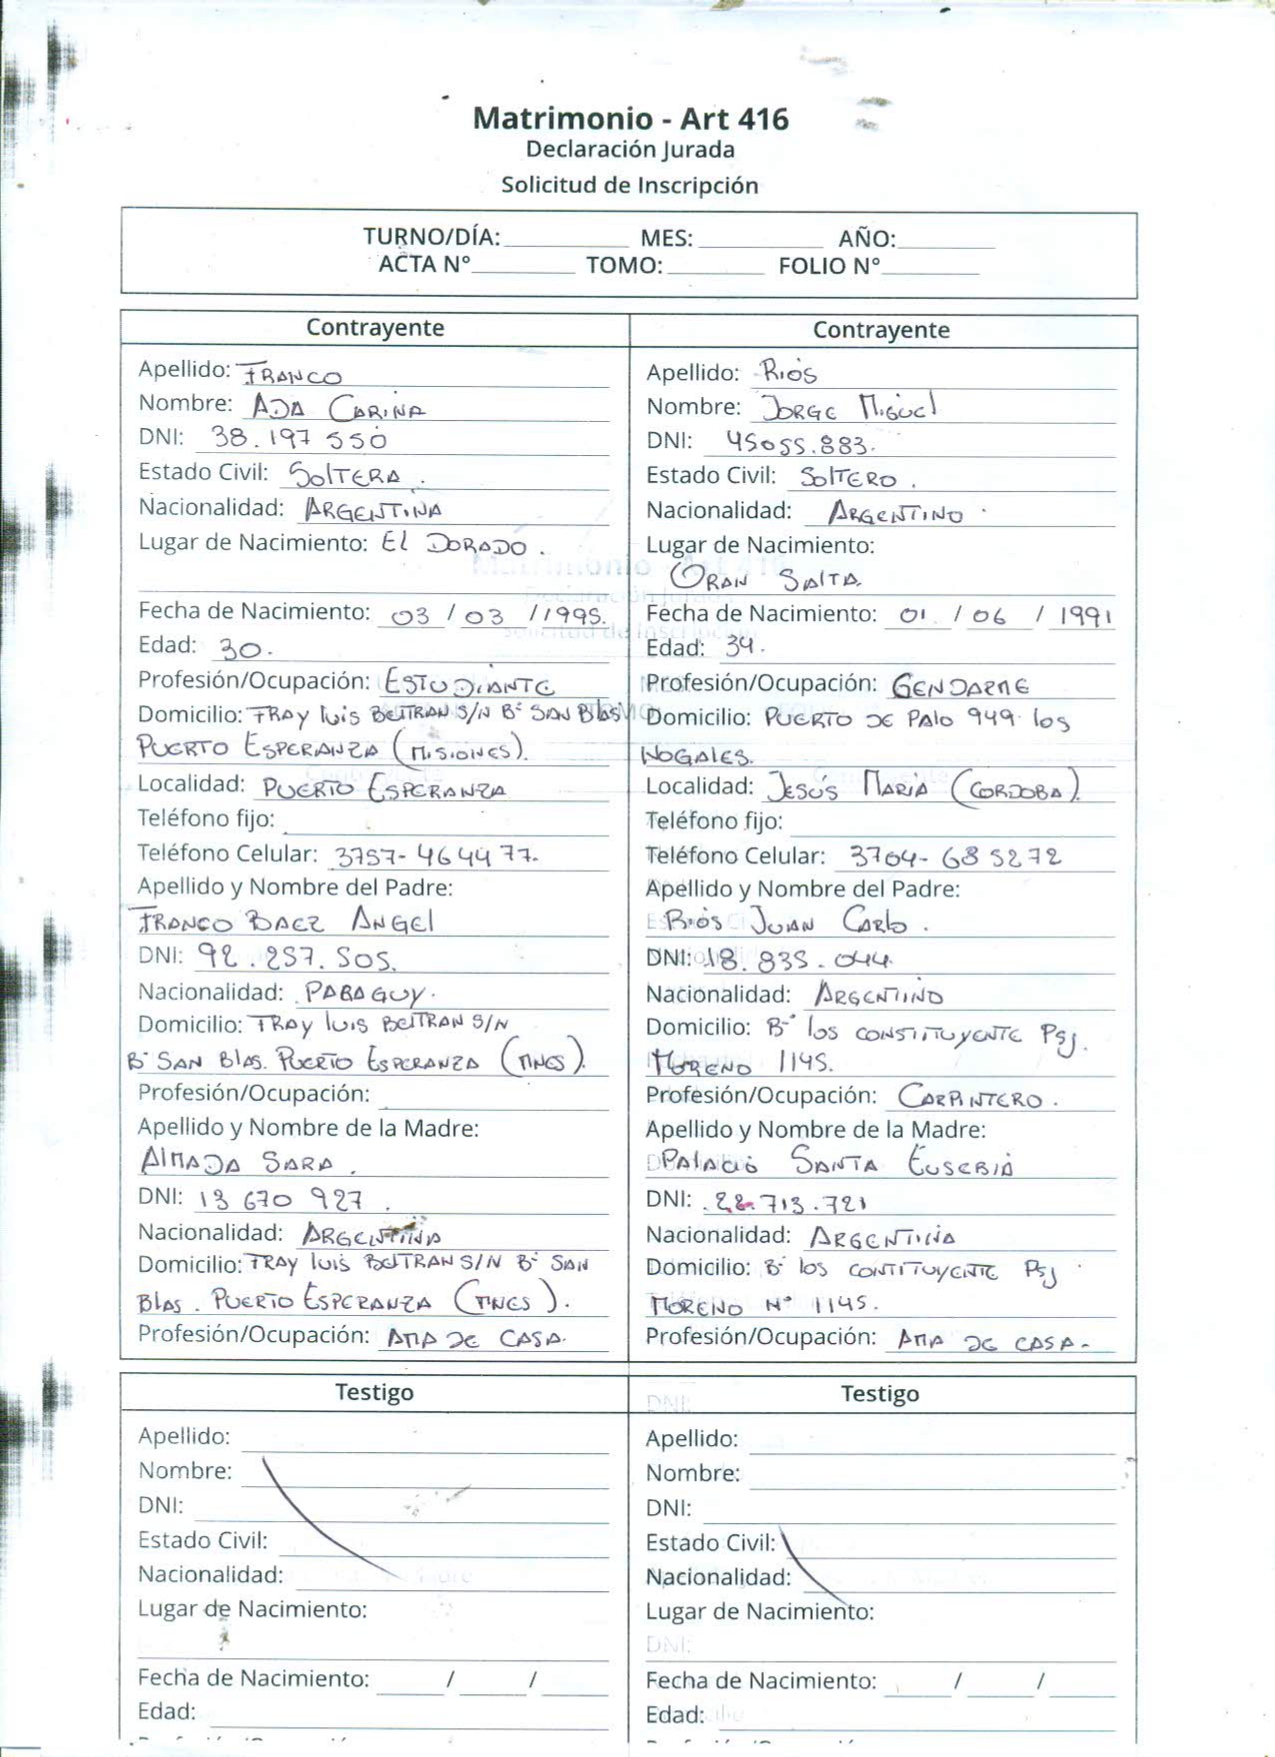 Matrimonio - Art 416
Declaración Jurada
Solicitud de Inscripción
TURNO/DÍA: MES: AÑO:
ACTA N° TOMO: FOLIO N°
Contrayente
Apellido: FRANCO
Nombre: ADA CARINA
DNI: 38.197 550
Estado Civil: SOLTERA.
Nacionalidad: ARGENTINA
Lugar de Nacimiento: EL DORADO.
Fecha de Nacimiento: 03 / 03 / 1995.
Edad: 30.
Profesión/Ocupación: ESTUDIANTE
Domicilio: FRAY LUIS BELTRAN S/N B° SAN BLAS
PUERTO ESPERANZA (MISIONES).
Localidad: PUERTO ESPERANZA
Teléfono fijo:
Teléfono Celular: 3757-464477.
Apellido y Nombre del Padre:
FRANCO BAEZ ANGEL
DNI: 92.257.505.
Nacionalidad: PARAGUY.
Domicilio: FRAY LUIS BELTRAN S/N
B° SAN BLAS. PUERTO ESPERANZA (MNES).
Profesión/Ocupación:
Apellido y Nombre de la Madre:
ALMADA SARA.
DNI: 13 670 927.
Nacionalidad: ARGENTINA
Domicilio: FRAY LUIS BELTRAN S/N B° SAN
BLAS. PUERTO ESPERANZA (MNES).
Profesión/Ocupación: AMA DE CASA.
Contrayente
Apellido: RIOS
Nombre: JORGE MIGUEL
DNI: 45055.883.
Estado Civil: SOLTERO.
Nacionalidad: ARGENTINO.
Lugar de Nacimiento:
ORAN SALTA.
Fecha de Nacimiento: 01 / 06 / 1991
Edad: 34.
Profesión/Ocupación: GENDARME
Domicilio: PUERTO DE PALO 949 LOS
NOGALES.
Localidad: JESÚS MARIA (CORDOBA).
Teléfono fijo:
Teléfono Celular: 3704-685272
Apellido y Nombre del Padre:
RIOS JUAN CARLO.
DNI: 18.835.044
Nacionalidad: ARGENTIINO
Domicilio: B° LOS CONSTITUYENTE PSJ.
MORENO 1145.
Profesión/Ocupación: CARPINTERO.
Apellido y Nombre de la Madre:
PALACIO SANTA EUSEBIA
DNI: 22.713.721
Nacionalidad: ARGENTINA
Domicilio: B° LOS CONTITUYENTE PSJ
MORENO N° 1145.
Profesión/Ocupación: AMA DE CASA.
Testigo
Apellido:
Nombre:
DNI:
Estado Civil:
Nacionalidad:
Lugar de Nacimiento:
Fecha de Nacimiento: / /
Edad:
Testigo
Apellido:
Nombre:
DNI:
Estado Civil:
Nacionalidad:
Lugar de Nacimiento:
Fecha de Nacimiento: / /
Edad: